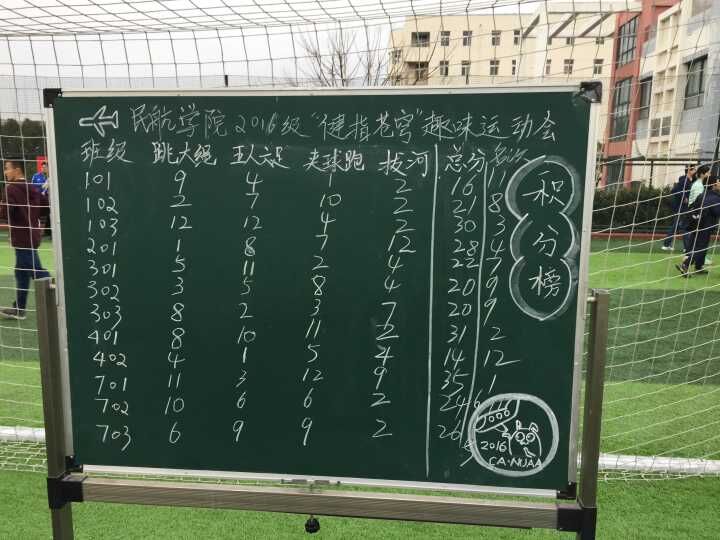 民航学院2016级"健指苍穹"趣味运动会
班级 跳大绳 五人六足 夹球跑 拔河 总分 名次
101 9 4 1 2 16 11
102 2 7 10 2 21 8
103 12 12 4 2 30 3
201 1 8 7 12 28 4
301 5 11 2 4 22 7
302 3 5 8 4 20 9
303 8 2 3 7 20 9
401 8 10 11 2 31 2
402 4 1 5 4 14 12
701 11 3 12 9 35 1
702 10 6 6 2 24 6
703 6 9 9 2 26
积
分
榜
2016
CA·NUAA